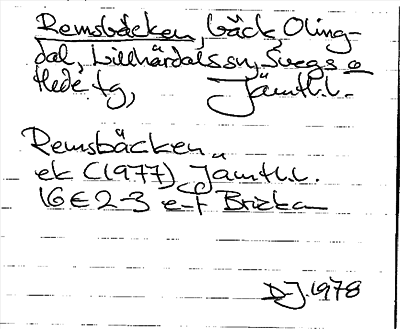 Remsbäcken, bäck Oling-
dal, Lillhärdals sn, Svegs o
Hede tg, Jämtl.l.
Remsbäcken
ek (1977) Jämtl.l.
16E 2-3 e-f Brickan
D.J. 1978